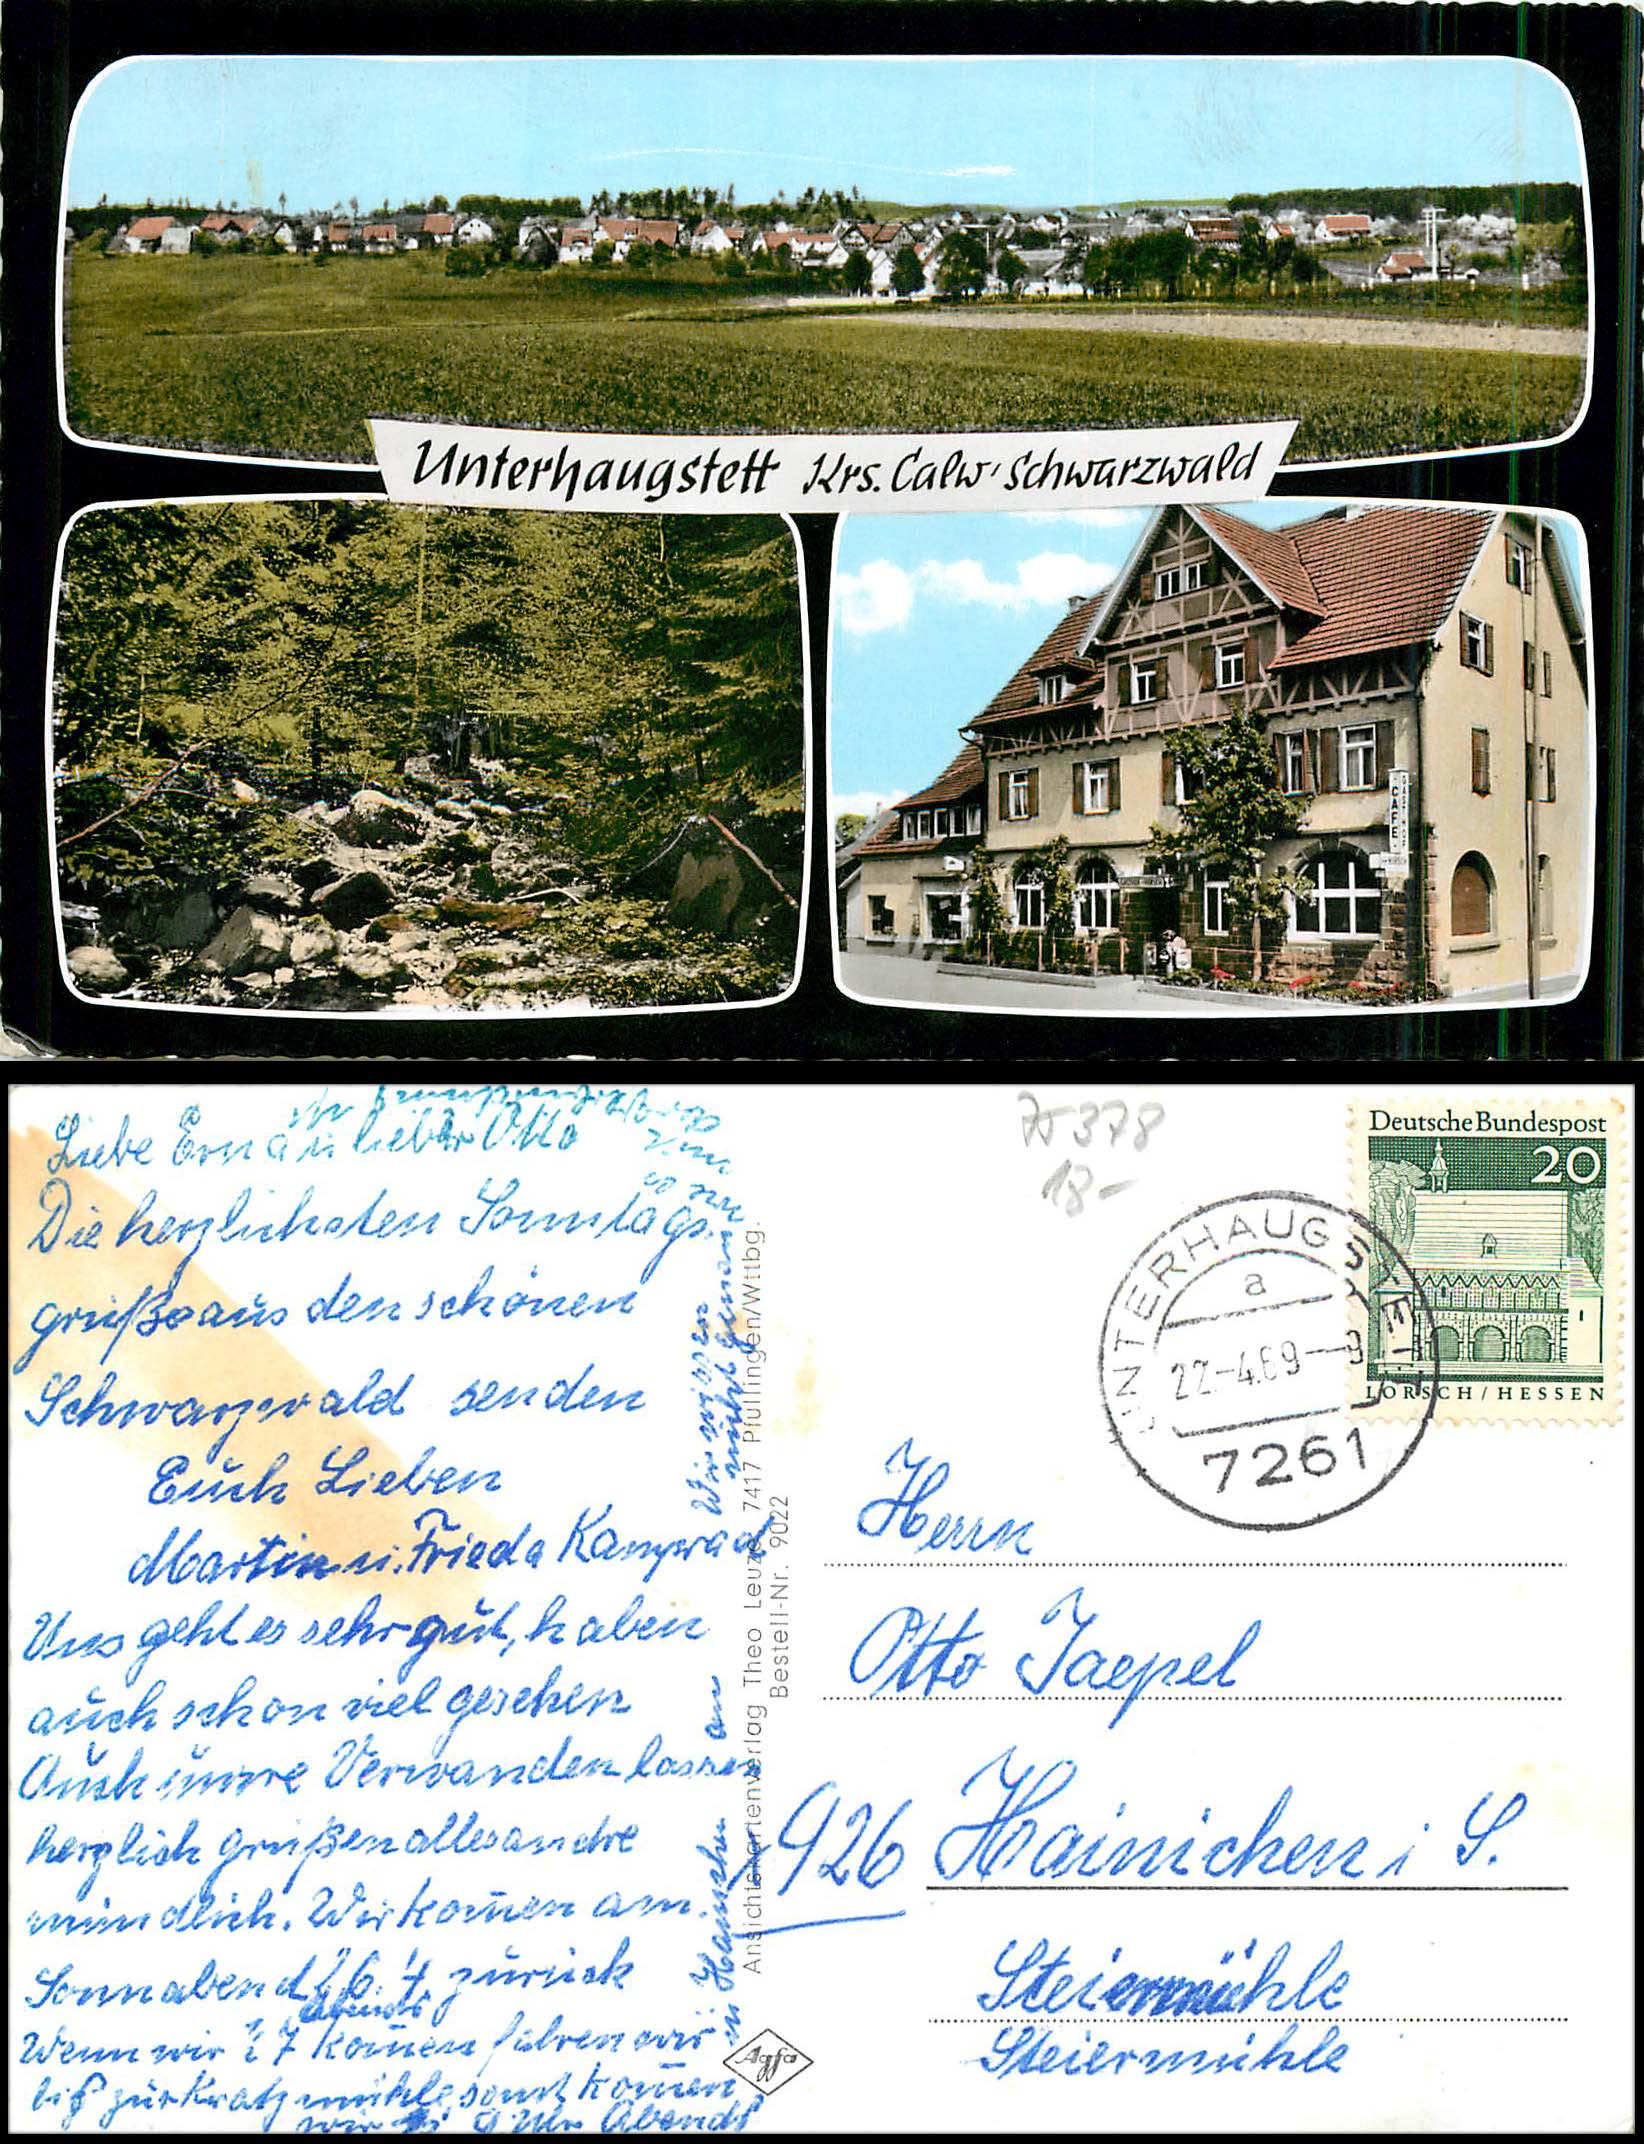 Unterhaugstett Krs. Calw, Schwarzwald
CAFE
GASTHOF
HIRSCH
Liebe Erna u lieber Otto
Die herzlichsten Sonntags.
grüße aus den schönen
Schwarzwald senden
Euch Lieben
Martin u. Frieda
Uns geht es sehr gut, haben
auch schon viel gesehen
Auch unsre Verwanden lassen
herzlich grüßen alles andre
mündlich. Wir kom̄en am.
Sonnabend 26. 4 zurück
abends
Wenn wir 27 kom̄en fahren wir
biß zur Kratzmühle, sonst kom̄en
wir 9 Uhr Abends
in Hainichen an
Wir wissen
nicht genau
Ansichtskartenverlag Theo Leuze, 7417 Pfullingen/Wttbg.
Bestell-Nr. 9022
Agfa
378
18-
Deutsche Bundespost
20
LORSCH/HESSEN
UNTERHAUGSTETT
a
22.-4.69-
7261
Herrn
Otto Jaepel
926 Hainichen i S.
Steiermühle
Steiermühle